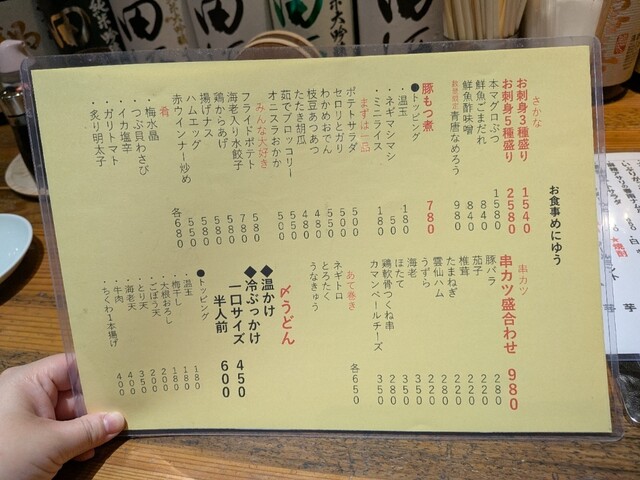 お食事めにゅう
さかな
お刺身3種盛り 1540
お刺身5種盛り 2580
本マグロぶつ 1580
鮮魚ごまだれ 840
鮮魚酢味噌 840
青唐なめろう 980
豚もつ煮 780
●トッピング
・温玉 180
・ネギマシマシ
・ミニライス 180
まずは一品
ポテトサラダ 500
セロリとガリ
わかめおでん
枝豆あつあつ
たたき胡瓜
茹でブロッコリー
オニスラおかか
みんな大好き
フライドポテト 580
海老入り水餃子 780
鶏からあげ
揚げナス
ハムエッグ 550
赤ウインナー炒め
肴 各680
・梅水晶
・つぶ貝わさび
・イカ塩辛
・ガリトマト
・炙り明太子
串カツ
串カツ盛合わせ 980
豚バラ 280
茄子 220
椎茸 220
たまねぎ 220
雲仙ハム 280
うずら 220
海老 350
ほたて 350
鶏軟骨つくね串 280
カマンベールチーズ 350
あて巻き 各650
ネギトロ
とろたく
うなきゅう
〆うどん
◆温かけ
◆冷ぶっかけ
一口サイズ 450
半人前 600
●トッピング
・温玉 180
・梅干し 180
・大根おろし 200
・ごぼう天 200
・とり天 350
・海老天 400
・牛肉 400
・ちくわ1本揚げ